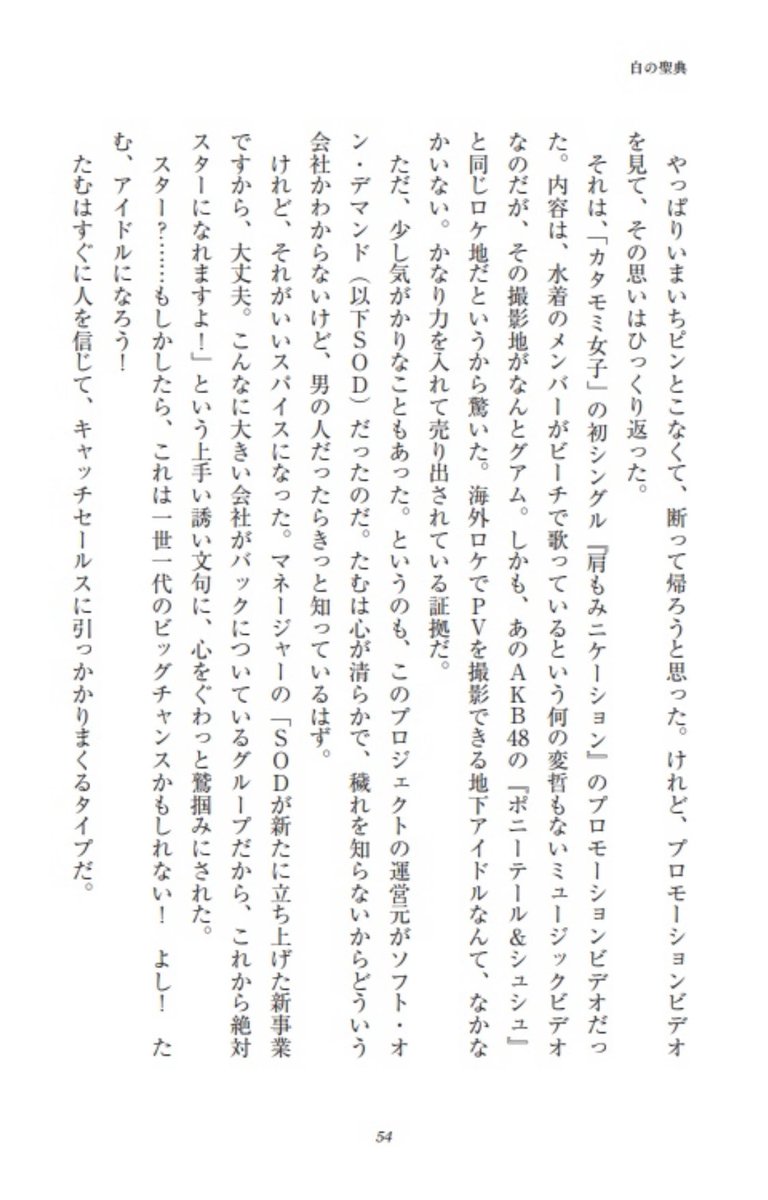 白の聖典
やっぱりいまいちピンとこなくて、断って帰ろうと思った。けれど、プロモーションビデオ
を見て、その思いはひっくり返った。
それは、「カタモミ女子」の初シングル『肩もみニケーション』のプロモーションビデオだっ
た。内容は、水着のメンバーがビーチで歌っているという何の変哲もないミュージックビデオ
なのだが、その撮影地がなんとグアム。しかも、あのAKB48の『ポニーテール&シュシュ』
と同じロケ地だというから驚いた。海外ロケでPVを撮影できる地下アイドルなんて、なかな
かいない。かなり力を入れて売り出されている証拠だ。
ただ、少し気がかりなこともあった。というのも、このプロジェクトの運営元がソフト・オ
ン・デマンド（以下SOD）だったのだ。たむは心が清らかで、穢れを知らないからどういう
会社かわからないけど、男の人だったらきっと知っているはず。
けれど、それがいいスパイスになった。マネージャーの「SODが新たに立ち上げた新事業
ですから、大丈夫。こんなに大きい会社がバックについているグループだから、これから絶対
スターになれますよ！」という上手い誘い文句に、心をぐわっと鷲掴みにされた。
スター？………もしかしたら、これは一世一代のビッグチャンスかもしれない！　よし！　た
む、アイドルになろう！
たむはすぐに人を信じて、キャッチセールスに引っかかりまくるタイプだ。
54